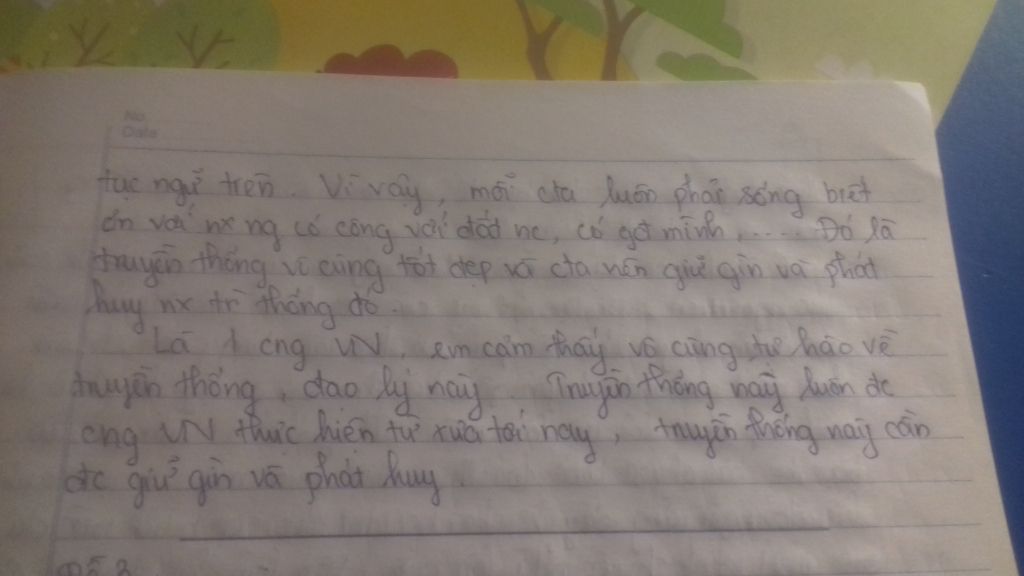 No.
Date
tục ngữ trên. Vì vậy, mỗi cta luôn phải sống biết
ơn với nx ng có công với đất nc, có gđ mình, .... Đó là
truyền thống vì cùng tốt đẹp và cta nên giữ gìn và phát
huy nx tr thống đó.
Là 1 cng VN, em cảm thấy vô cùng tự hào về
truyền thống, đạo lý này. Truyền thống này luôn đc
cng VN thực hiện từ xưa tới nay, truyền thống này cần
đc giữ gìn và phát huy.